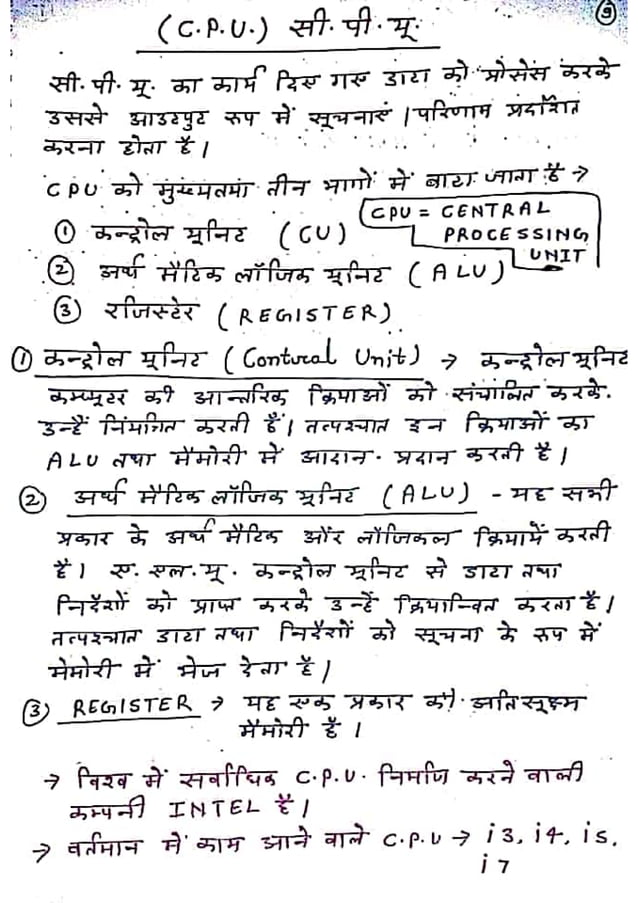 9
(C.P.U.) सी.पी.यू.
सी.पी.यू. का कार्य दिए गए डाटा को प्रोसेस करके
उससे आउटपुट रूप में सूचनाएं / परिणाम प्रदर्शित
करना होता है।
CPU को मुख्यतया तीन भागों में बाटा जाता है →
① कन्ट्रोल यूनिट (CU)
CPU = CENTRAL
PROCESSING
UNIT
② अर्थ मैटिक लॉजिक यूनिट (ALU)
③ रजिस्टेर (REGISTER)
① कन्ट्रोल यूनिट (Contural Unit) → कन्ट्रोल यूनिट
कम्प्यूटर की आन्तरिक क्रियाओं को संचालित करके.
उन्हें नियंत्रित करती हैं। तत्पश्चात इन क्रियाओं का
ALU तथा मैमोरी में आदान-प्रदान करती है।
② अर्थ मैटिक लॉजिक यूनिट (ALU) - यह सभी
प्रकार के अर्थ मैटिक और लौजिकल क्रियायें करती
है। ए.एल.यू. कन्ट्रोल यूनिट से डाटा तथा
निर्देशों को प्राप्त करके उन्हें क्रियान्वित करता है।
तत्पश्चात डाटा तथा निर्देशों को सूचना के रूप में
मेमोरी में भेज देता है।
③ REGISTER → यह एक प्रकार की अतिसूक्ष्म
मैमोरी है।
→ विश्व में सर्वाधिक C.P.U. निर्माण करने वाली
कम्पनी INTEL है।
→ वर्तमान में काम आने वाले C.P.U → i3, i4, i5,
i7